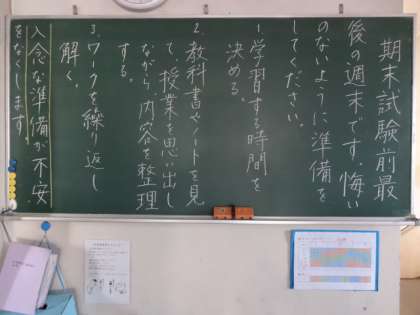 期末試験前最
後の週末です。悔い
のないように準備を
してください。
1.学習する時間を
決める。
2.教科書やノートを見
て、授業を思い出し
ながら内容を整理
する。
3.ワークを繰り返し
解く。
入念な準備が不安
をなくします